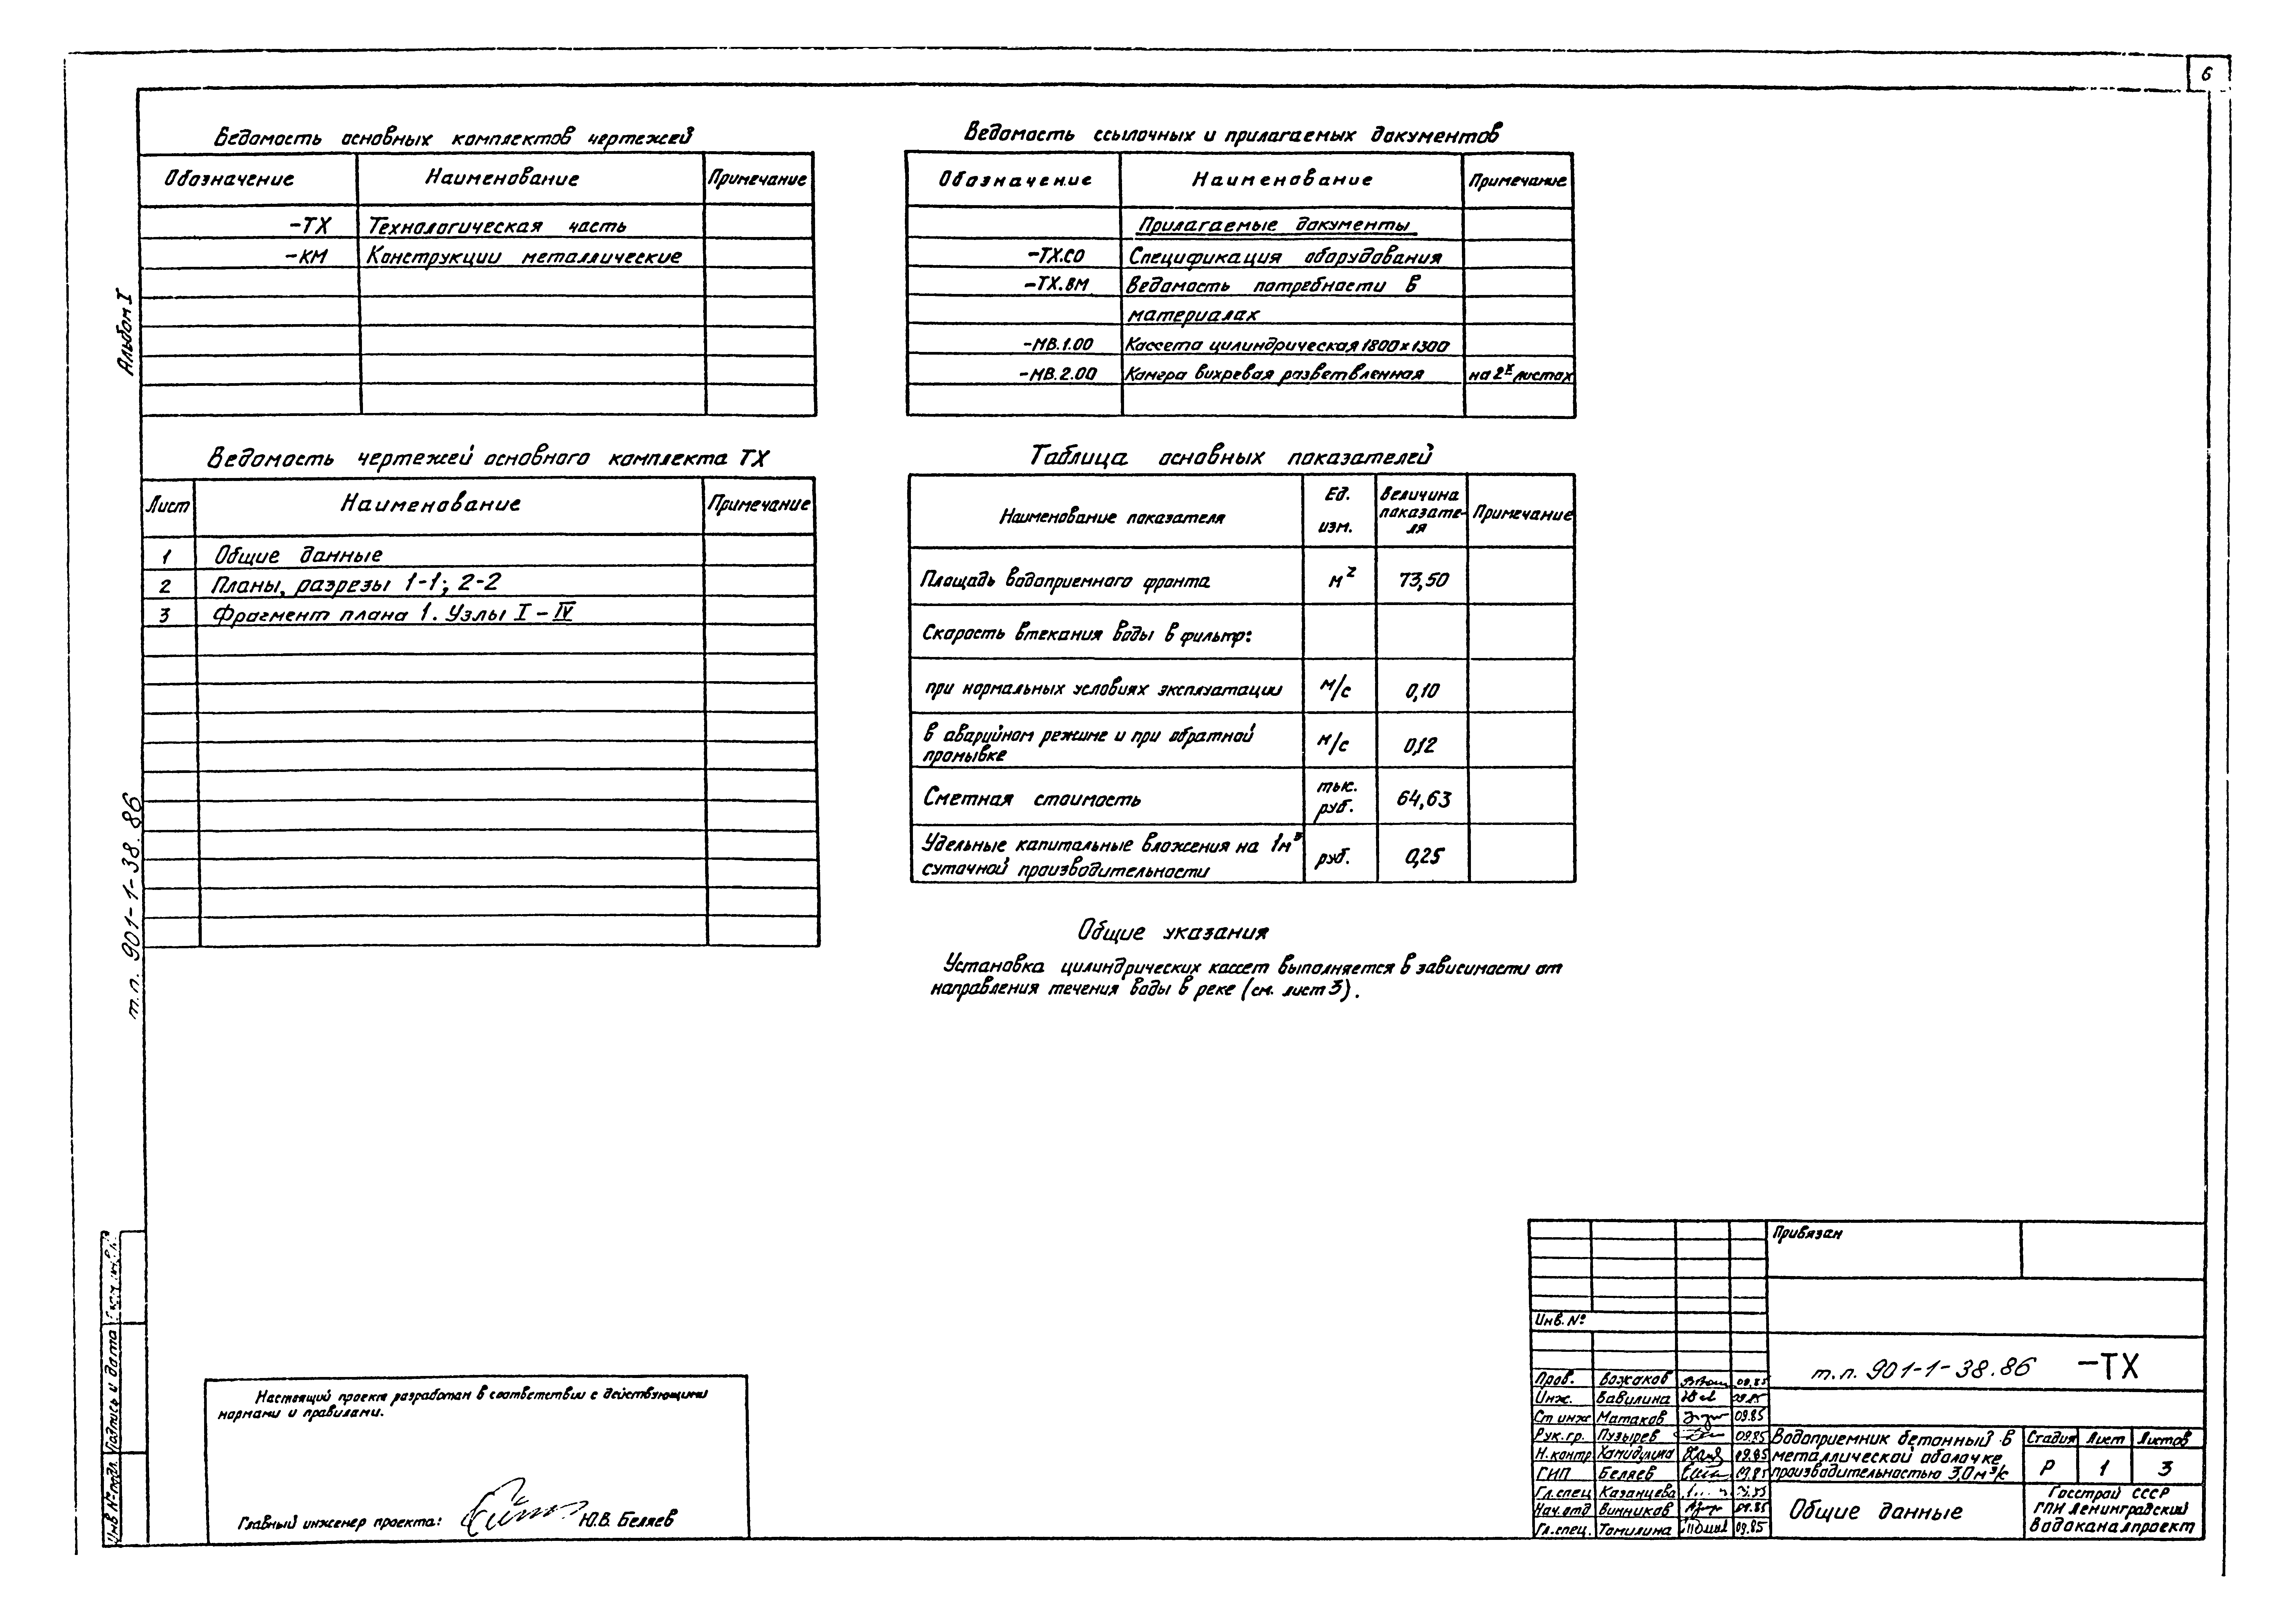 6
Альбом I
т.п. 901-1-38.86
Ведомость основных комплектов чертежей
Обозначение Наименование Примечание
-ТХ Технологическая часть
-КМ Конструкции металлические
Ведомость чертежей основного комплекта ТХ
Лист Наименование Примечание
1 Общие данные
2 Планы, разрезы 1-1; 2-2
3 Фрагмент плана 1. Узлы I-IV
Ведомость ссылочных и прилагаемых документов
Обозначение Наименование Примечание
Прилагаемые документы
-ТХ.СО Спецификация оборудования
-ТХ.ВМ Ведомость потребности в
материалах
-МВ.1.00 Кассета цилиндрическая 1800×1300
-МВ.2.00 Камера вихревая разветвленная на 2х листах
Таблица основных показателей
Наименование показателя Ед. изм. Величина показате-ля Примечание
Площадь водоприемного фронта м² 73,50
Скорость втекания воды в фильтр:
при нормальных условиях эксплуатации м/с 0,10
в аварийном режиме и при обратной
промывке м/с 0,12
Сметная стоимость тыс. руб. 64,63
Удельные капитальные вложения на 1м³
суточной производительности руб. 0,25
Общие указания
Установка цилиндрических кассет выполняется в зависимости от
направления течения воды в реке (см. лист 3).
Настоящий проект разработан в соответствии с действующими
нормами и правилами.
Главный инженер проекта: Ю.В. Беляев
Инв № подл. Подпись и дата
Привязан
Инв. №
т.п. 901-1-38.86 -ТХ
Пров. Вожаков 09.85
Инж. Вавилина 09.85
Ст инж Матаков 09.85
Рук. гр. Пузырев 09.85
Н. контр Хамидулина 09.85
ГИП Беляев 09.85
Гл. спец Казанцева
Нач. отд Винников 09.85
Гл. спец. Томилина 09.85
Водоприемник бетонный в
металлической оболочке
производительностью 3,0 м³/с
Стадия Лист Листов
Р 1 3
Общие данные
Госстрой СССР
ГПИ Ленинградский
Водоканалпроект